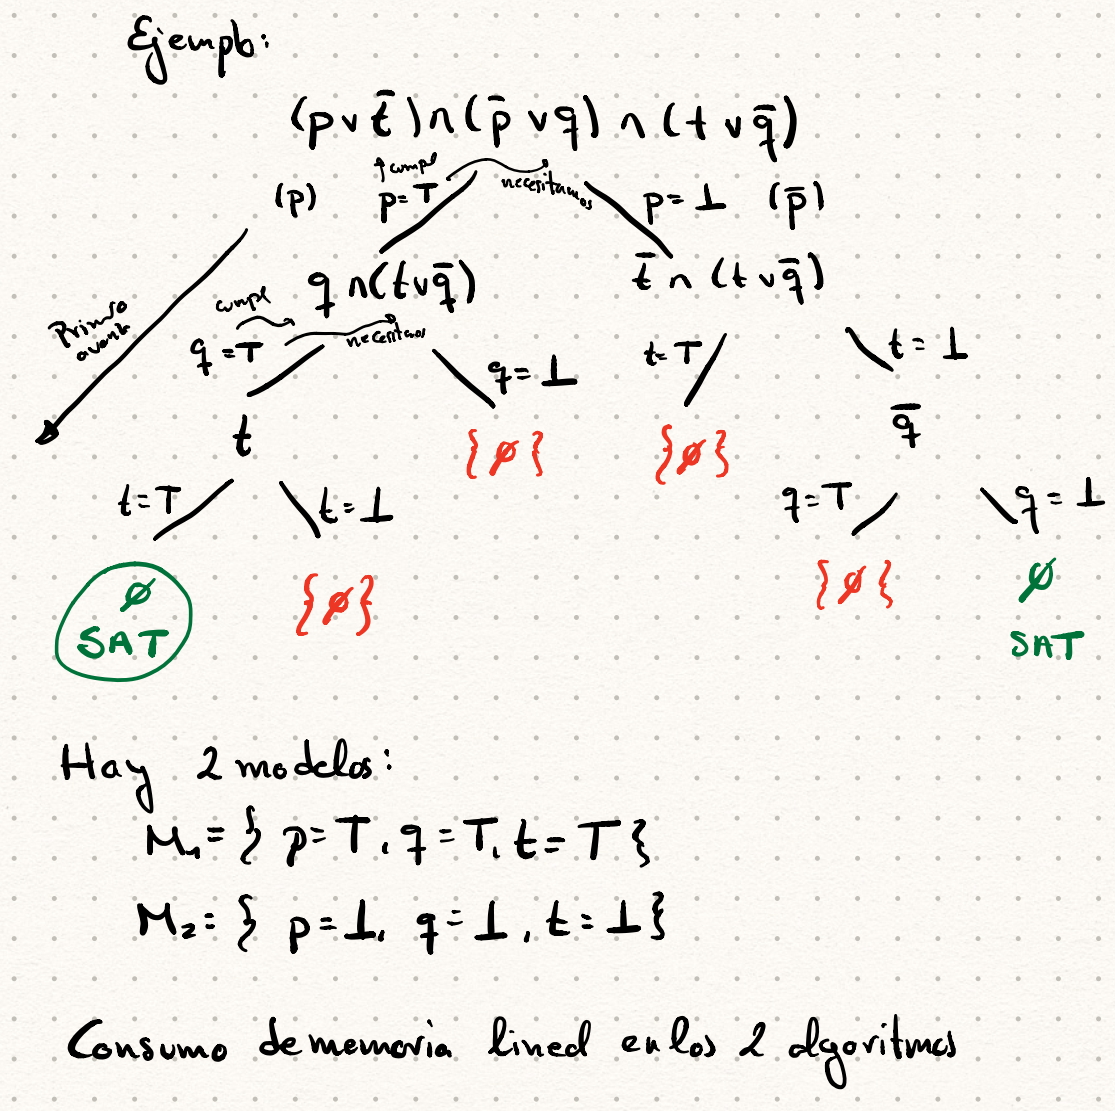 Ejemplo:
(p ∨ t̄) ∧ (p̄ ∨ q) ∧ (t ∨ q̄)
↑ cumple
necesitamos
(p) p=⊤ p=⊥ (p̄)
q ∧ (t ∨ q̄) t̄ ∧ (t ∨ q̄)
cumple
Primero
necesitamos
q=⊤ q=⊥ t=⊤ t=⊥
t {∅} {∅} q̄
t=⊤ t=⊥ q=⊤ q=⊥
∅ {∅} {∅} ∅
SAT SAT
Hay 2 modelos:
M₁={ p=⊤, q=⊤, t=⊤}
M₂={ p=⊥, q=⊥, t=⊥}
Consumo de memoria lineal en los 2 algoritmos